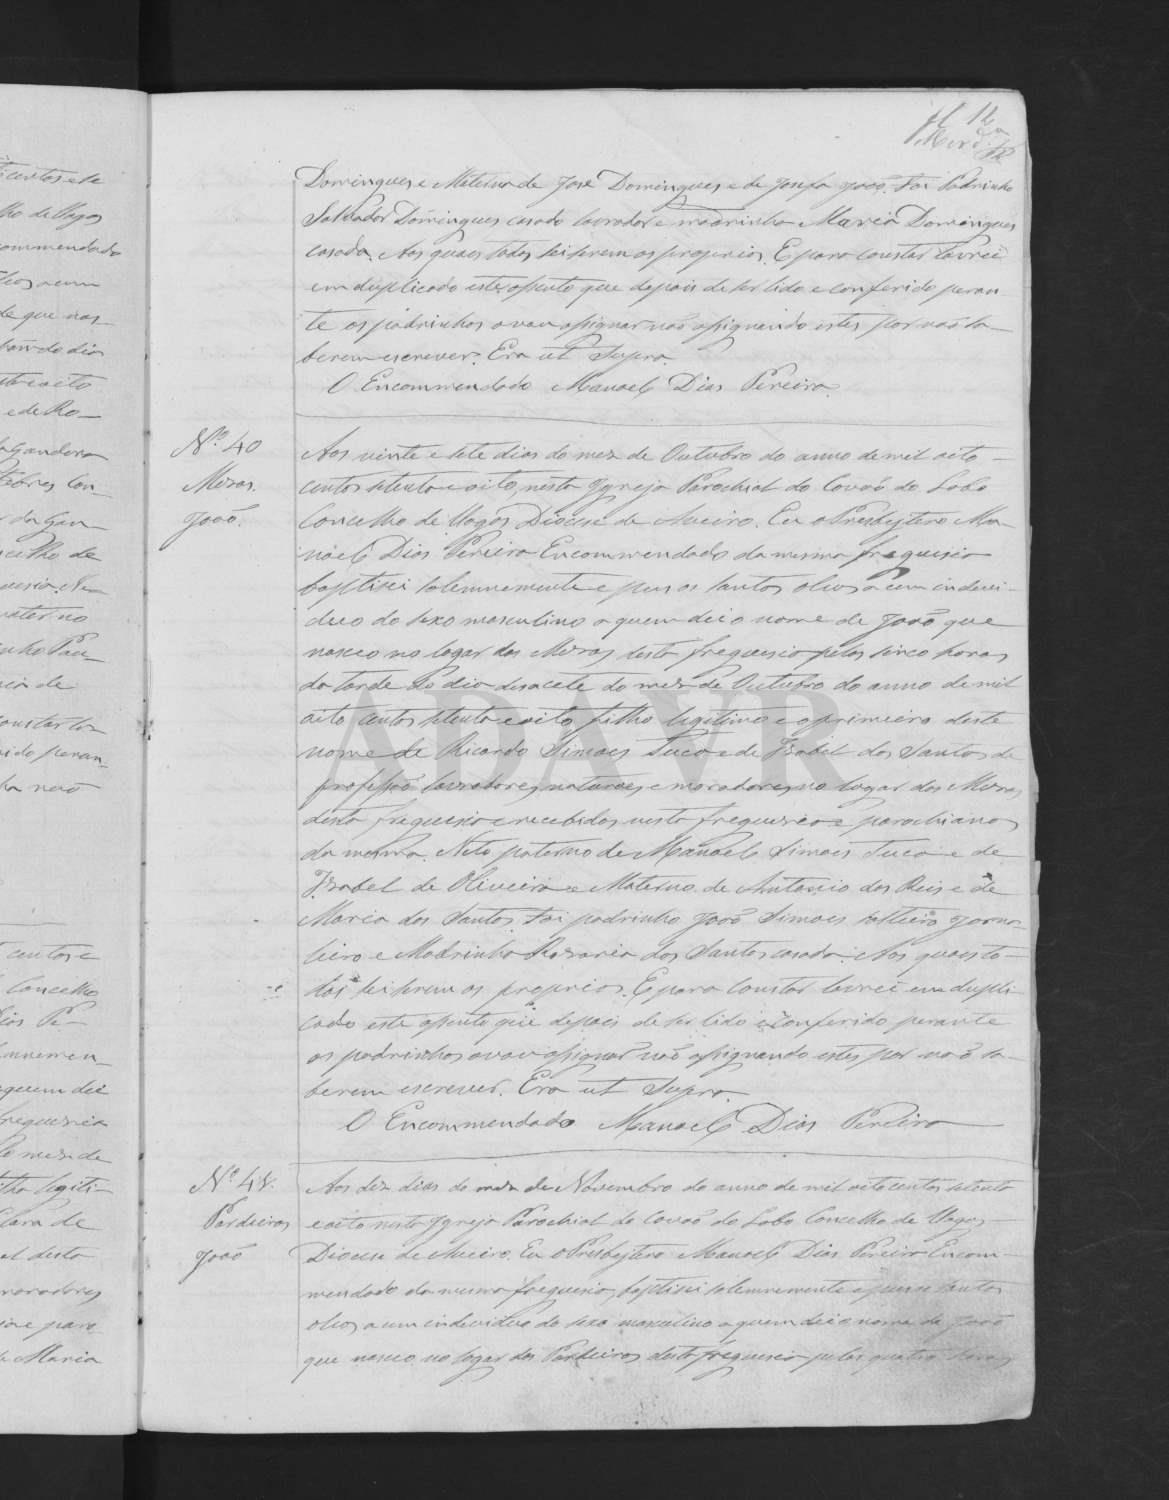 fl 12
Domingues e Materna de José Domingues e de Josefa João. Foi Padrinho
Salvador Domingues casado lavrador e madrinha Maria Domingues
casada. Aos quaes todos sei serem os proprios. E para constar lavrei
em duplicado este assento que depois de ser lido e conferido peran-
te os padrinhos o vou assignar não assignando estes por não sa-
berem escrever. Era ut Supra.
O Encommendado Manoel Dias Pereira.
Nº 40
Mezas.
João.
Aos vinte e sete dias do mez de Outubro do anno de mil oito-
centos setenta e oito, nesta Igreja Parochial do Covão do Lobo
Concelho de Vagos Diocese de Aveiro. Eu o Presbytero Ma-
noel Dias Pereira Encommendado da mesma freguesia
baptisei solemnemente e pus os santos oleos a um indevi-
duo do sexo masculino a quem dei o nome de João que
nasceo no logar das Mezas desta freguesia pelas sinco horas
da tarde do dia desacete do mez de Outubro do anno de mil
oito centos setenta e oito, filho legitimo e o primeiro deste
nome de Ricardo Simoes Tuco e de Izabel dos Santos de
profissão lavradores, naturaes e moradores no logar das Mezas
desta freguesia e recebidos nesta freguesia e parochianos
da mesma. Neto paterno de Manoel Simoes Tuco e de
Izabel de Oliveira e Materno de Antonio dos Reis e de
Maria dos Santos. Foi padrinho João Simoes solteiro jorna-
leiro e Madrinha Rozaria dos Santos casada. Aos quaes to-
dos sei serem os proprios. E para constar lavrei em dupli-
cado este assento que depois de ser lido e conferido perante
os padrinhos o vou assignar não assignando estes por não sa-
berem escrever. Era ut Supra.
O Encommendado Manoel Dias Pereira
Nº 41.
Pardeiros
João
Aos dez dias do mez de Novembro do anno de mil oito centos setenta
e oito nesta Igreja Parochial do Covão do Lobo Concelho de Vagos-
Diocese de Aveiro. Eu o Presbytero Manoel Dias Pereira Encom-
mendado da mesma freguesia, baptisei solemnemente e pus os santos
oleos a um individuo do sexo masculino a quem dei o nome de João
que nasceo no logar dos Pardeiros desta freguesia pelas quatro horas
ADAVR